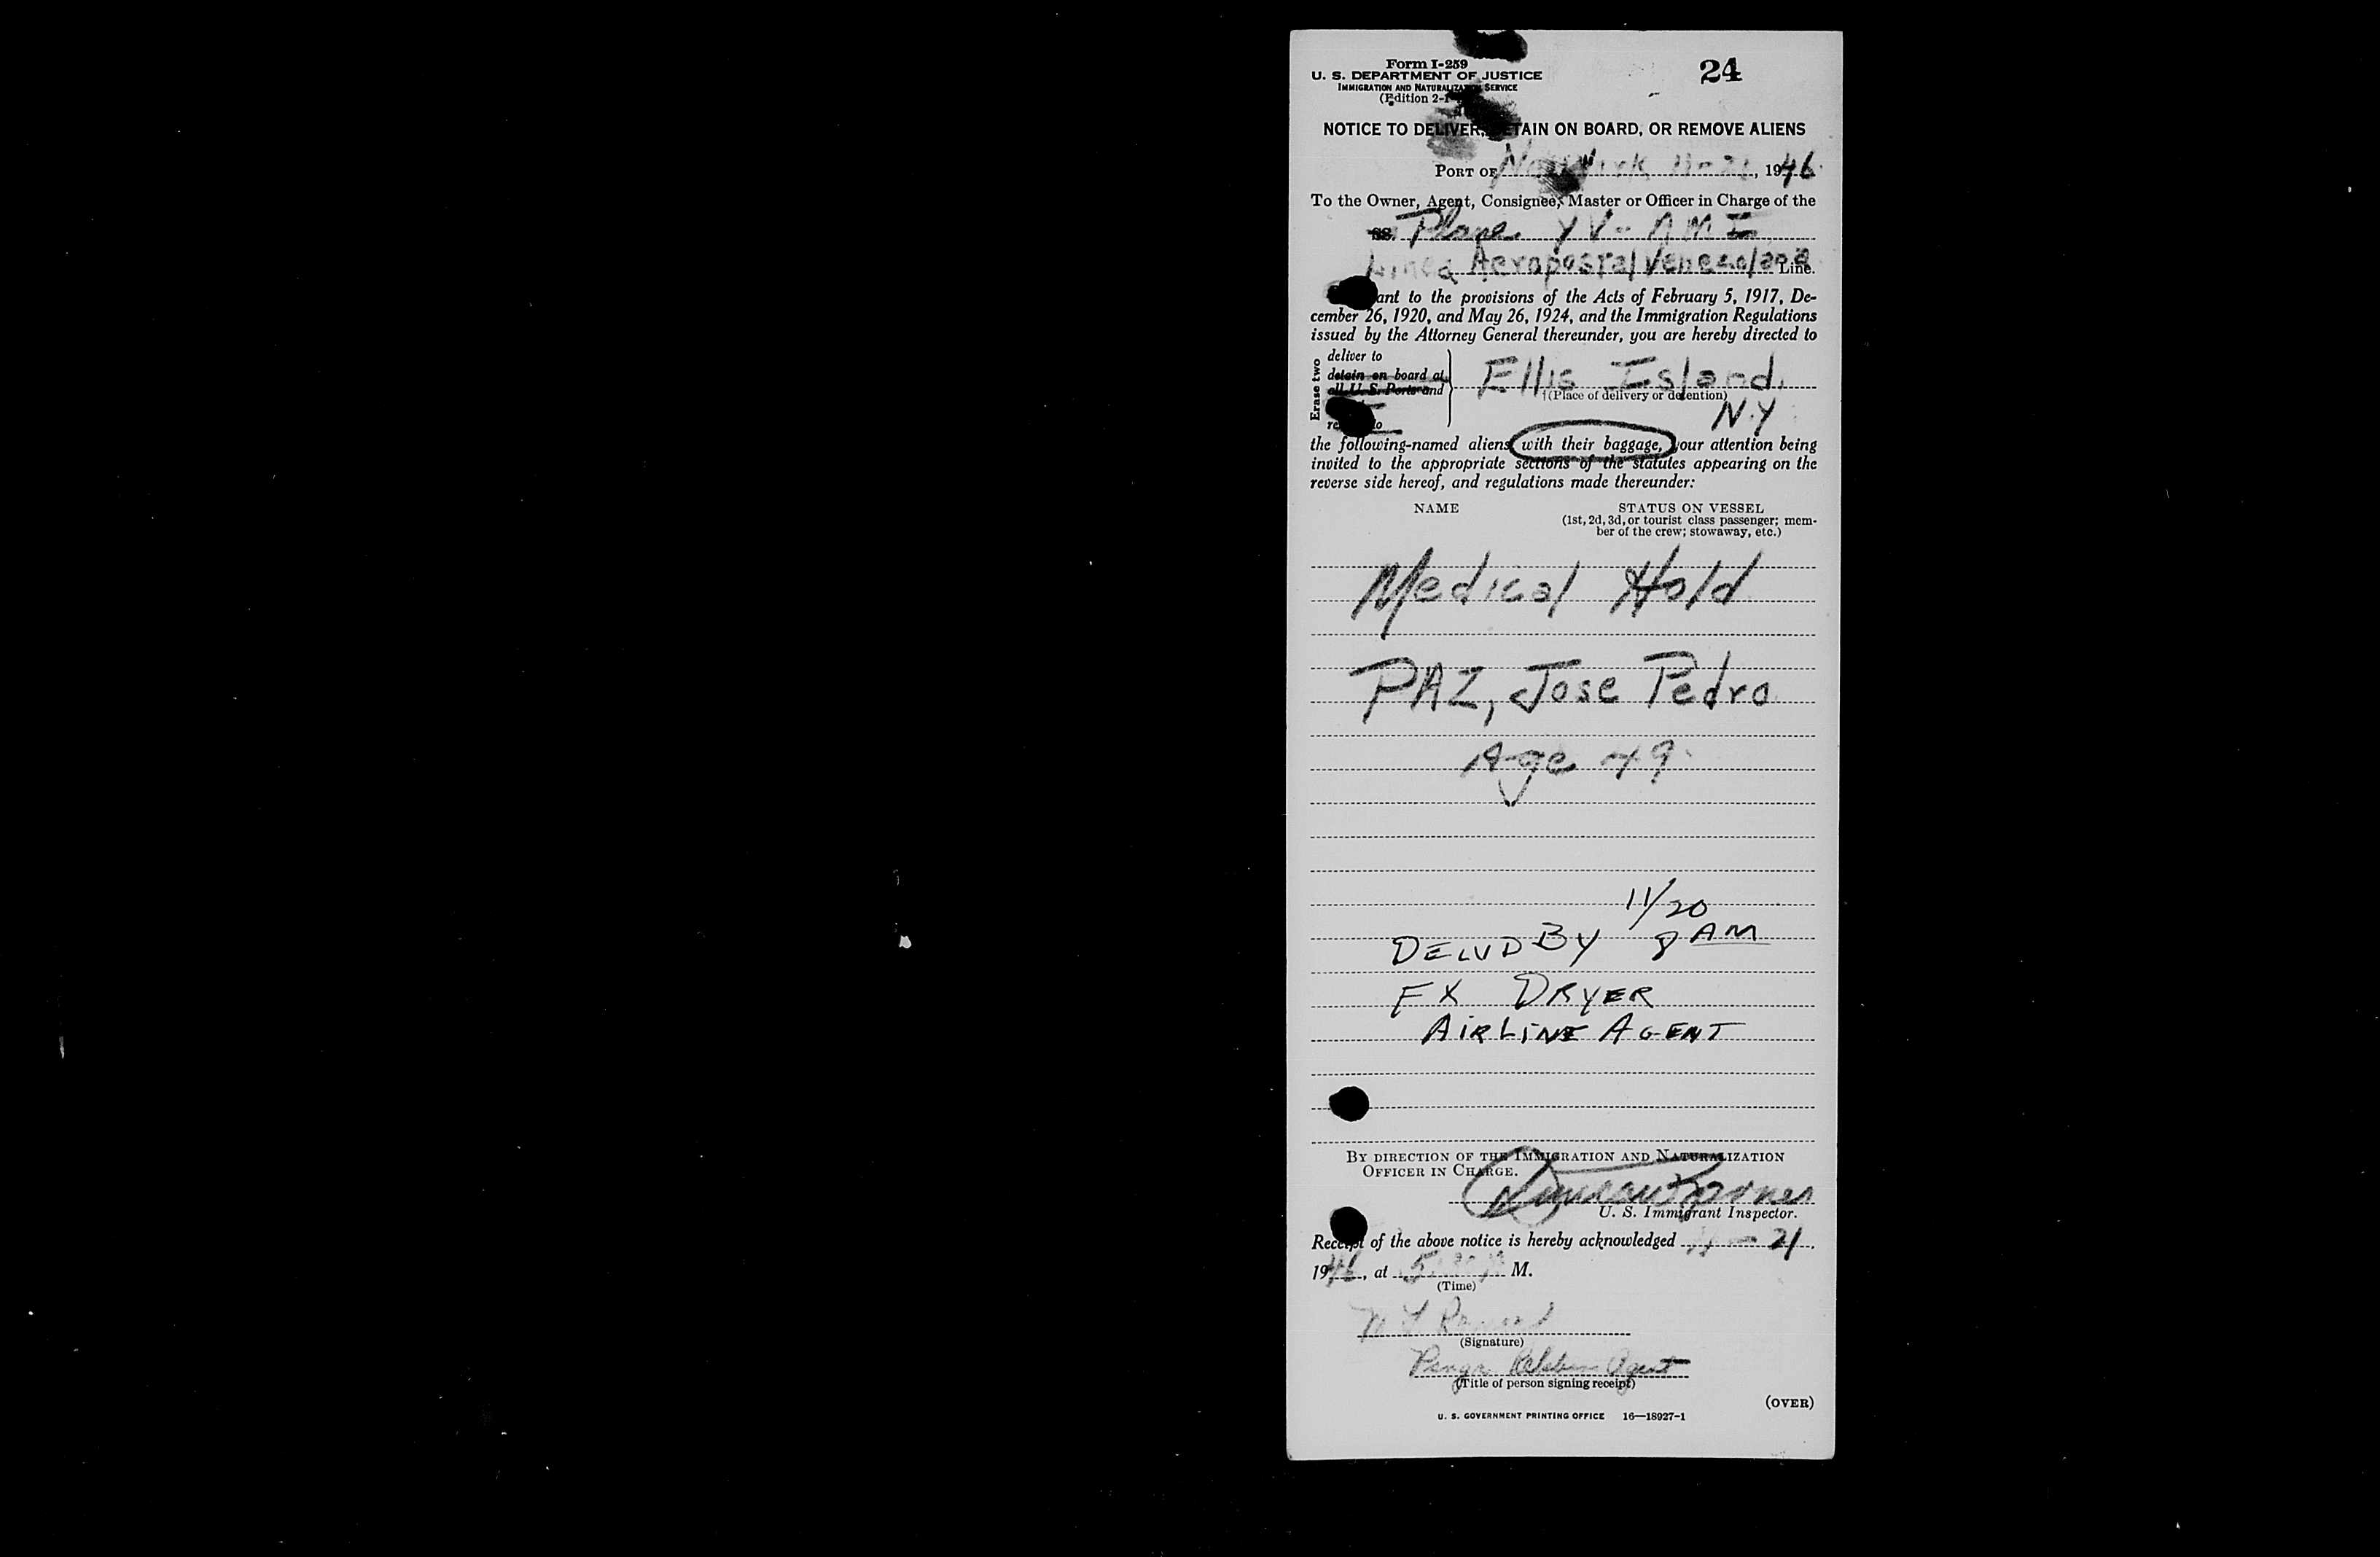 Form I-259
24
U. S. DEPARTMENT OF JUSTICE
IMMIGRATION AND NATURALIZATION SERVICE
(Edition 2-1
NOTICE TO DELIVER, DETAIN ON BOARD, OR REMOVE ALIENS
PORT OF New York 11-21, 1946
To the Owner, Agent, Consignee, Master or Officer in Charge of the
SS. Plane YV-AMI
Linea Aeropostal Venezolana Line.
ant to the provisions of the Acts of February 5, 1917, De-
cember 26, 1920, and May 26, 1924, and the Immigration Regulations
issued by the Attorney General thereunder, you are hereby directed to
Erase two
deliver to
detain on board at
all U. S. Ports and
re to
Ellis Island,
(Place of delivery or detention)
N.Y
the following-named aliens with their baggage, your attention being
invited to the appropriate sections of the statutes appearing on the
reverse side hereof, and regulations made thereunder:
NAME STATUS ON VESSEL
(1st, 2d, 3d, or tourist class passenger; mem-
ber of the crew; stowaway, etc.)
Medical Hold
PAZ, Jose Pedro
Age 49
11/20
DELVD BY 8 AM
FX DRYER
AIRLINE AGENT
BY DIRECTION OF THE IMMIGRATION AND NATURALIZATION
OFFICER IN CHARGE.
U. S. Immigrant Inspector.
Receipt of the above notice is hereby acknowledged 11-21,
1946, at 5 M.
(Time)
(Signature)
Agent
(Title of person signing receipt)
(OVER)
U. S. GOVERNMENT PRINTING OFFICE 16—18927-1